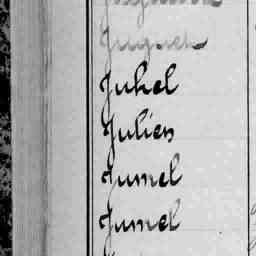 Juguet
Juhel
Julien
Jumel
Jumel